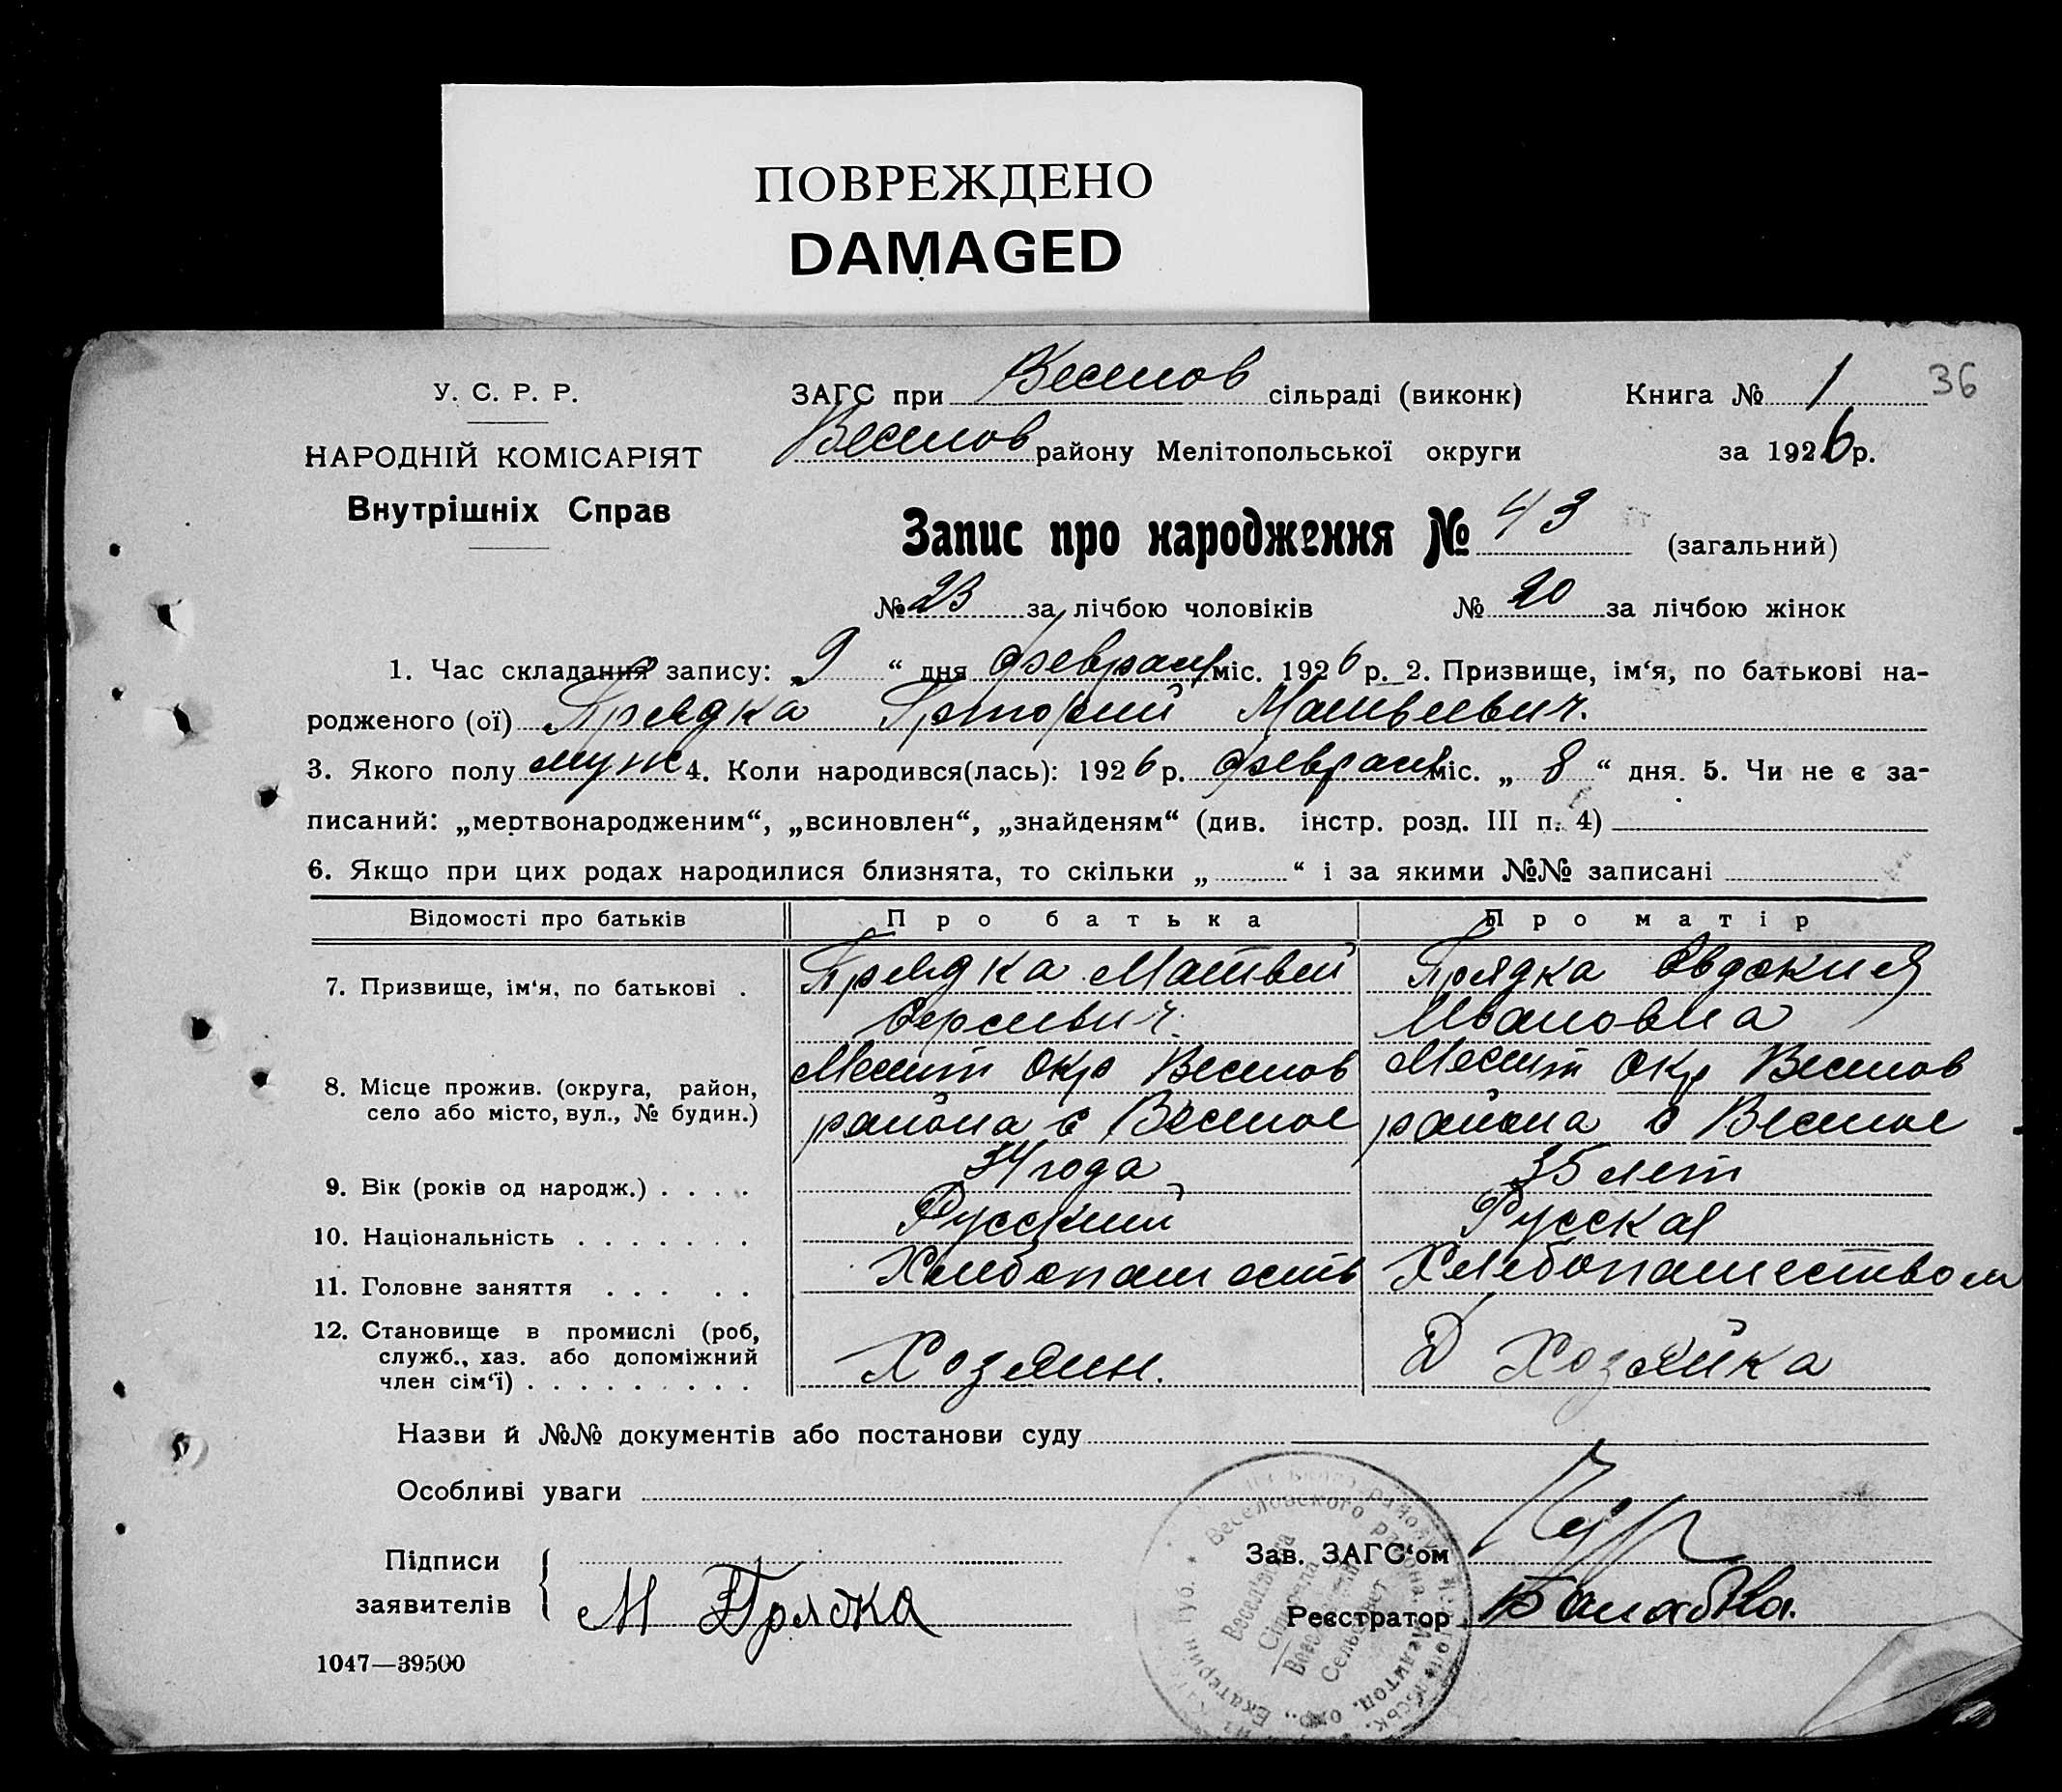 ПОВРЕЖДЕНО
DAMAGED
36
У. С. Р. Р.
НАРОДНІЙ КОМІСАРІЯТ
Внутрішніх Справ
ЗАГС при Веселов сільраді (виконк) Книга № 1
Веселов району Мелітопольської округи за 1926 р.
Запис про народження № 43 (загальний)
№ 23 за лічбою чоловіків № 20 за лічбою жінок
1. Час складання запису: „ 9 “ дня февраля міс. 1926 р. 2. Призвище, ім‘я, по батькові на-
родженого (ої) Прядка Григорий Матвеевич.
3. Якого полу муж 4. Коли народився(лась): 1926 р. февраля міс. „ 8 “ дня. 5. Чи не є за-
писаний: „мертвонародженим“, „всиновлен“, „знайденям“ (див. інстр. розд. III п. 4)
6. Якщо при цих родах народилися близнята, то скільки „ “ і за якими №№ записані
Відомості про батьків Про батька Про матір
7. Призвище, ім‘я, по батькові . Прядка Матвей Прядка Евдокия
Сергеевич. Ивановна
8. Місце прожив. (округа, район, Мелит окр Веселов Мелит окр Веселов
село або місто, вул., № будин.) района с Веселое района с Веселое
9. Вік (років од народж.) . . . . 34 года 35 лет
10. Національність . . . . . . . Русский Русская
11. Головне заняття . . . . . Хлебопашеств Хлебопашеством
12. Становище в промислі (роб,
служб., хаз. або допоміжний
член сім‘ї) . . . . . . . . . Хозяин. Д Хозяйка
Назви й №№ документів або постанови суду
Особливі уваги
Підписи Зав. ЗАГС‘ом
заявителів М Прядка Реєстратор
Веселовского района Мелитоп. окр. Екатерин губ.
Веселівська
Сільрада
Сельсовет
1047—39500